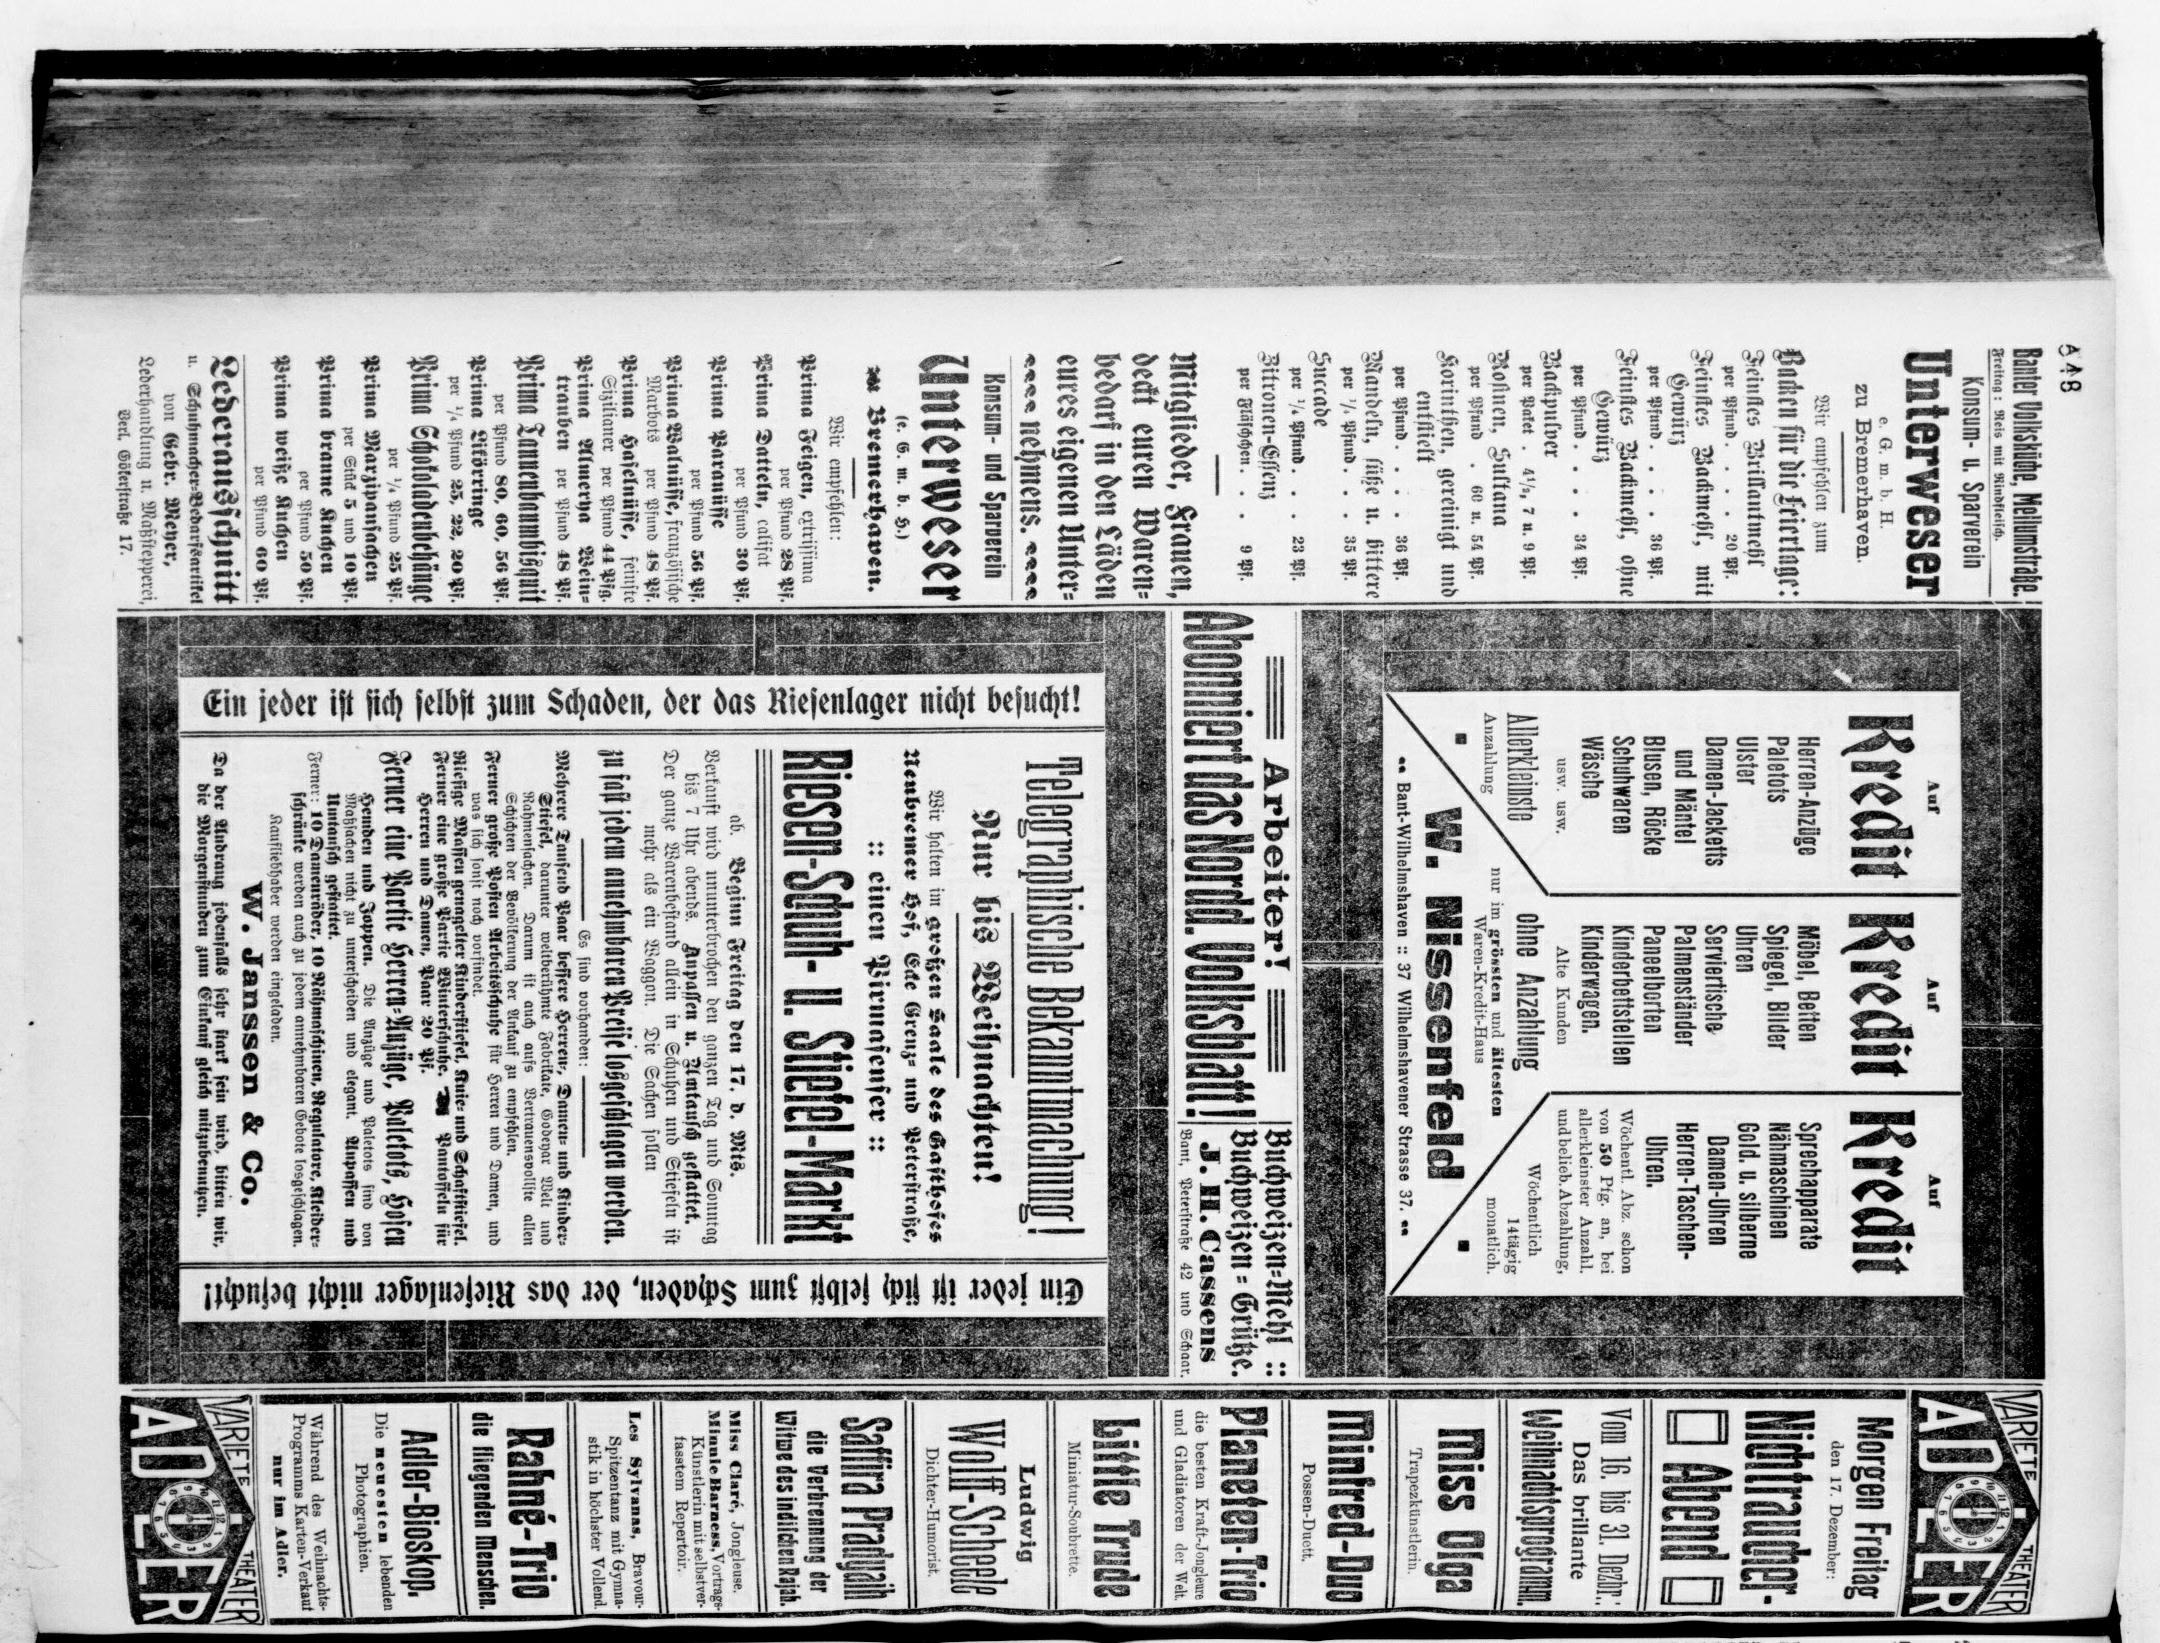 A48
Banter Volksküche, Mellumstraße.
Freitag: Reis mit Rindfleisch.
Konsum- u. Sparverein
Unterweser
e. G. m. b. H.
zu Bremerhaven.
Wir empfehlen zum
Backen für die Feiertage:
Feinstes Brillantmehl
per Pfund . . . 20 Pf.
Feinstes Backmehl, mit
Gewürz
per Pfund . . . 36 Pf.
Feinstes Backmehl, ohne
Gewürz
per Pfund . . . 34 Pf.
Backpulver
per Paket . 4½, 7 u. 9 Pf.
Rosinen, Sultana
per Pfund . 60 u. 54 Pf.
Korinthen, gereinigt und
entstielt
per Pfund . . . 36 Pf.
Mandeln, süße u. bittere
per ¼ Pfund . . 35 Pf.
Succade
per ¼ Pfund . . 23 Pf.
Zitronen-Essenz
per Fläschchen . . . 9 Pf.
Mitglieder, Frauen,
deckt euren Waren-
bedarf in den Läden
eures eigenen Unter-
nehmens.
Konsum- und Sparverein
Unterweser
(e. G. m. b. H.)
Bremerhaven.
Wir empfehlen:
Prima Feigen, extrissima
per Pfund 28 Pf.
Prima Datteln, califat
per Pfund 30 Pf.
Prima Paranüsse
per Pfund 56 Pf.
Prima Walnüsse, französische
Marbots per Pfund 48 Pf.
Prima Haselnüsse, feinste
Sizilianer per Pfund 44 Pfg.
Prima Almerha Wein-
trauben per Pfund 48 Pf.
Prima Tannenbaumbiskuit
per Pfund 80, 60, 56 Pf.
Prima Likörringe
per ¼ Pfund 25, 22, 20 Pf.
Prima Schokoladenbehänge
per ¼ Pfund 25 Pf.
Prima Marzipansachen
per Stück 5 und 10 Pf.
Prima braune Kuchen
per Pfund 50 Pf.
Prima weiße Kuchen
per Pfund 60 Pf.
Lederausschnitt
u. Schuhmacher-Bedarfsartikel
von Gebr. Meyer,
Lederhandlung u. Maßstepperei,
Verl. Göterstraße 17.
Auf
Kredit
Herren-Anzüge
Paletots
Ulster
Damen-Jacketts
und Mäntel
Blusen, Röcke
Schuhwaren
Wäsche
usw. usw.
Allerkleinste
Anzahlung
Auf
Kredit
Möbel, Betten
Spiegel, Bilder
Uhren
Serviertische
Palmenständer
Paneelborten
Kinderbettstellen
Kinderwagen.
Alte Kunden
ohne Anzahlung
Auf
Kredit
Sprechapparate
Nähmaschinen
Gold. u. silberne
Damen-Uhren
Herren-Taschen-
Uhren.
Wöchentl. Abz. schon
von 50 Pfg. an, bei
allerkleinster Anzahl.
und belieb. Abzahlung,
Wöchentlich
14tägig
monatlich.
nur im grössten und ältesten
Waren-Kredit-Haus
W. Nissenfeld
Bant-Wilhelmshaven :: 37 Wilhelmshavener Strasse 37.
Arbeiter!
Abonniert das Nordd. Volksblatt!
Buchweizen-Mehl ::
Buchweizen-Grütze.
J. H. Cassens
Bant, Peterstraße 42 und Schaar.
Ein jeder ist sich selbst zum Schaden, der das Riesenlager nicht besucht!
Telegraphische Bekanntmachung!
Nur bis Weihnachten!
Wir halten im großen Saale des Gasthofes
Neubremer Hof, Ecke Grenz- und Peterstraße,
:: einen Pirmasenser ::
Riesen-Schuh- u. Stiefel-Markt
ab. Beginn Freitag den 17. d. Mts.
Verkauft wird ununterbrochen den ganzen Tag und Sonntag
bis 7 Uhr abends. Anpassen u. Umtausch gestattet.
Der ganze Warenbestand allein in Schuhen und Stiefeln ist
mehr als ein Waggon. Die Sachen sollen
zu fast jedem annehmbaren Preise losgeschlagen werden.
Es sind vorhanden:
Mehrere Tausend Paar bessere Herren-, Damen- und Kinder-
Stiefel, darunter weltberühmte Fabrikate, Godegar Welt und
Rahmensachen. Darum ist auch aufs Vertrauensvollste allen
Schichten der Bevölkerung der Ankauf zu empfehlen.
Ferner große Posten Arbeitsschuhe für Herren und Damen, und
was sich sonst noch vorfindet.
Riesige Massen genagelter Kinderstiefel, Knie- und Schaftstiefel.
Ferner eine große Partie Winterschuhe. Pantoffeln für
Herren und Damen, Paar 20 Pf.
Ferner eine Partie Herren-Anzüge, Paletots, Hosen
Hemden und Joppen. Die Anzüge und Paletots sind von
Maßsachen nicht zu unterscheiden und elegant. Anpassen und
Umtausch gestattet.
Ferner: 10 Damenräder, 10 Nähmaschinen, Regulatore, Kleider-
schränke werden auch zu jedem annehmbaren Gebote losgeschlagen.
Kaufliebhaber werden eingeladen.
W. Janssen & Co.
Da der Andrang jedenfalls sehr stark sein wird, bitten wir,
die Morgenstunden zum Einkauf gleich mitzubenutzen.
Ein jeder ist sich selbst zum Schaden, der das Riesenlager nicht besucht!
VARIETE THEATER
ADLER
Morgen Freitag
den 17. Dezember:
Nichtraucher-
Abend
Vom 16. bis 31. Dezbr.:
Das brillante
Weihnachtsprogramm.
Miss Olga
Trapezkünstlerin.
Minfred-Duo
Possen-Duett.
Planeten-Trio
die besten Kraft-Jongleure
und Gladiatoren der Welt.
Little Trude
Miniatur-Soubrette.
Ludwig
Wolff-Scheele
Dichter-Humorist.
Saffira Pradyaih
die Verbrennung der
Witwe des indischen Rajah.
Miss Claré, Jongleuse.
Minnie Barness, Vortrags-
Künstlerin mit selbstver-
fasstem Repertoir.
Les Sylvanas, Bravour-
Spitzentanz mit Gymna-
stik in höchster Vollend.
Rahné-Trio
die fliegenden Menschen.
Adler-Bioskop.
Die neuesten lebenden
Photographien.
Während des Weihnachts-
Programms Karten-Verkauf
nur im Adler.
VARIETE THEATER
ADLER